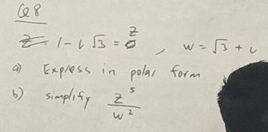 Q8
z = 1 - i √3 , w = √3 + i
a) Express in polar form
b) simplify z⁵ / w²